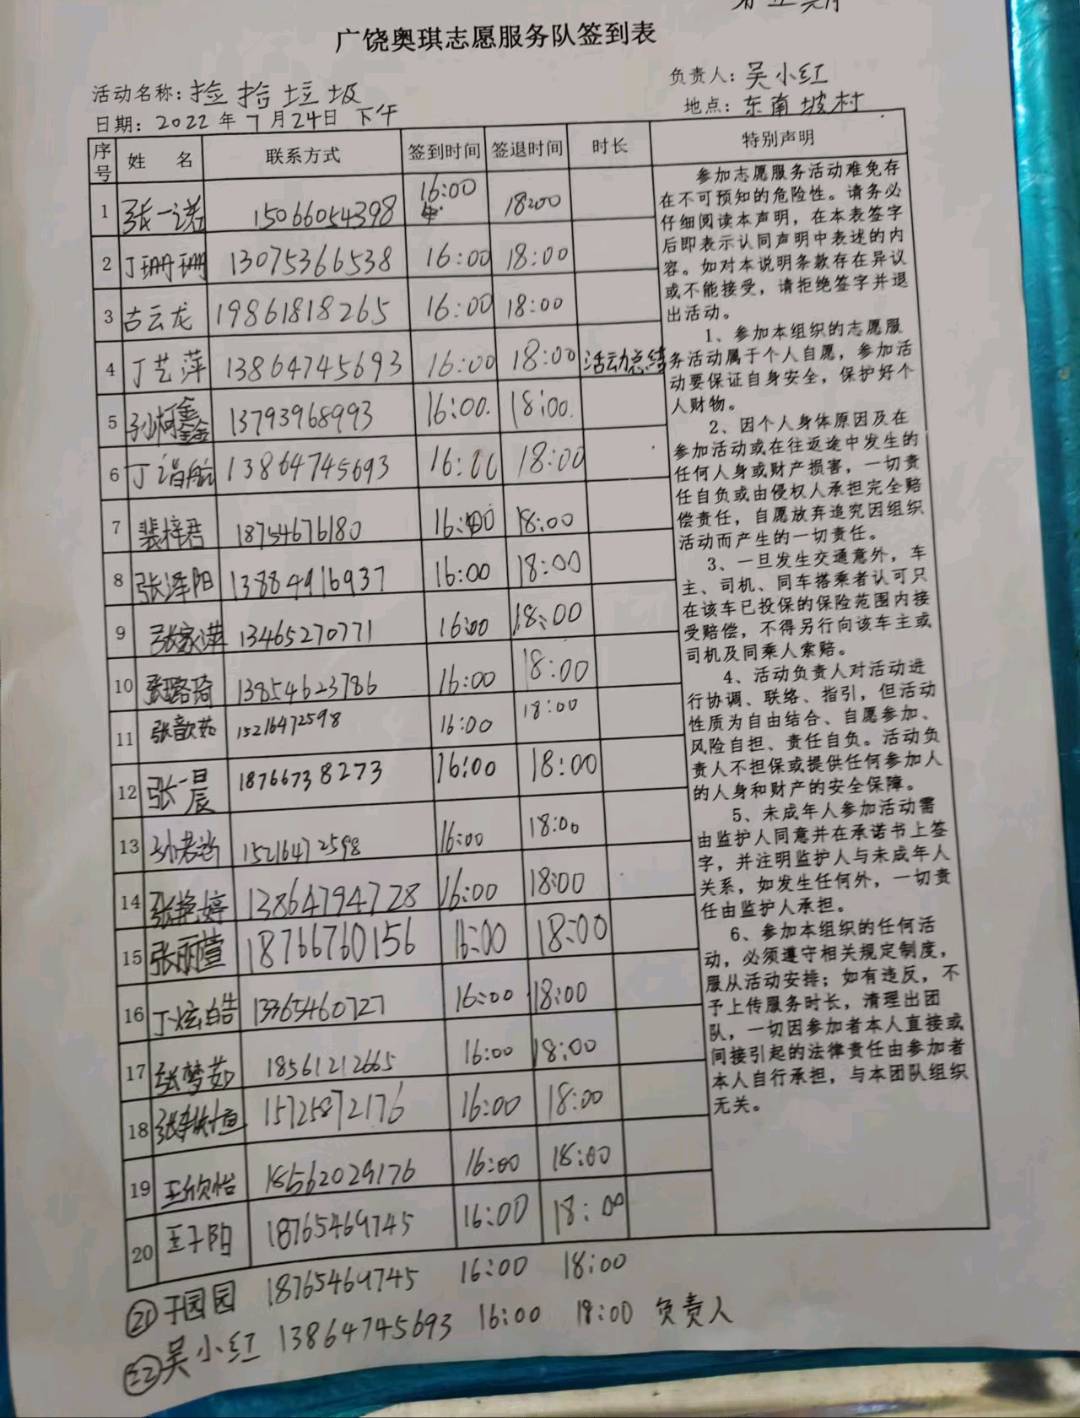 广饶奥琪志愿服务队签到表
活动名称：捡拾垃圾 负责人：吴小红
日期：2022年7月24日 下午 地点：东南坡村
序号 姓名 联系方式 签到时间 签退时间 时长 特别声明
1 张一诺 15066054398 16:00 18:00
2 丁珊珊 13075366538 16:00 18:00
3 古云龙 19861818265 16:00 18:00
4 丁艺萍 13864745693 16:00 18:00 活动总结
5 孙柯鑫 13793968993 16:00 18:00
6 丁 航 13864745693 16:00 18:00
7 裴梓君 18754676180 16:00 18:00
8 张泽阳 13884916937 16:00 18:00
9 张家潍 13465270771 16:00 18:00
10 张璐琦 13854623786 16:00 18:00
11 张歆茹 15216472598 16:00 18:00
12 张一晨 18766738273 16:00 18:00
13 孙 15216472598 16:00 18:00
14 张艳婷 13864794728 16:00 18:00
15 张丽萱 18766760156 16:00 18:00
16 丁炫皓 13365460727 16:00 18:00
17 张梦茹 18561212665 16:00 18:00
18 张 恒 15725872176 16:00 18:00
19 王欣怡 18562029176 16:00 18:00
20 王子阳 18765469745 16:00 18:00
㉑ 于园园 18765469745 16:00 18:00
㉒ 吴小红 13864745693 16:00 18:00 负责人
参加志愿服务活动难免存
在不可预知的危险性。请务必
仔细阅读本声明，在本表签字
后即表示认同声明中表述的内
容。如对本说明条款存在异议
或不能接受，请拒绝签字并退
出活动。
1、参加本组织的志愿服
务活动属于个人自愿，参加活
动要保证自身安全，保护好个
人财物。
2、因个人身体原因及在
参加活动或在往返途中发生的
任何人身或财产损害，一切责
任自负或由侵权人承担完全赔
偿责任，自愿放弃追究因组织
活动而产生的一切责任。
3、一旦发生交通意外，车
主、司机、同车搭乘者认可只
在该车已投保的保险范围内接
受赔偿，不得另行向该车主或
司机及同乘人索赔。
4、活动负责人对活动进
行协调、联络、指引，但活动
性质为自由结合、自愿参加、
风险自担、责任自负。活动负
责人不担保或提供任何参加人
的人身和财产的安全保障。
5、未成年人参加活动需
由监护人同意并在承诺书上签
字，并注明监护人与未成年人
关系，如发生任何外，一切责
任由监护人承担。
6、参加本组织的任何活
动，必须遵守相关规定制度，
服从活动安排；如有违反，不
予上传服务时长，清理出团
队，一切因参加者本人直接或
间接引起的法律责任由参加者
本人自行承担，与本团队组织
无关。